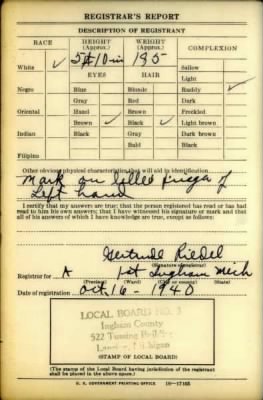 REGISTRAR'S REPORT
DESCRIPTION OF REGISTRANT
RACE
HEIGHT (Approx.)
WEIGHT (Approx.)
COMPLEXION
White ✓
5 ft 10 in
185
Sallow
EYES
HAIR
Light
Negro
Blue
Blonde
Ruddy ✓
Gray
Red
Dark
Oriental
Hazel
Brown ✓
Freckled
Brown ✓
Black
Light brown
Indian
Black
Gray
Dark brown
Bald
Black
Filipino
Other obvious physical characteristics that will aid in identification
Mark on finger of
Left hand
I certify that my answers are true; that the person registered has read or has
had read to him his own answers; that I have witnessed his signature or mark and that
all of his answers of which I have knowledge are true, except as follows:
Gertrude Riedel
(Signature of registrar)
Registrar for A 1st Ingham Mich
(Precinct) (Ward) (City or county) (State)
Date of registration Oct 16 - 1940
LOCAL BOARD NO. 3
Ingham County
522 Tussing Building
Lansing, Michigan
(STAMP OF LOCAL BOARD)
(The stamp of the Local Board having jurisdiction of the registrant
shall be placed in the above space.)
U. S. GOVERNMENT PRINTING OFFICE 16—17105